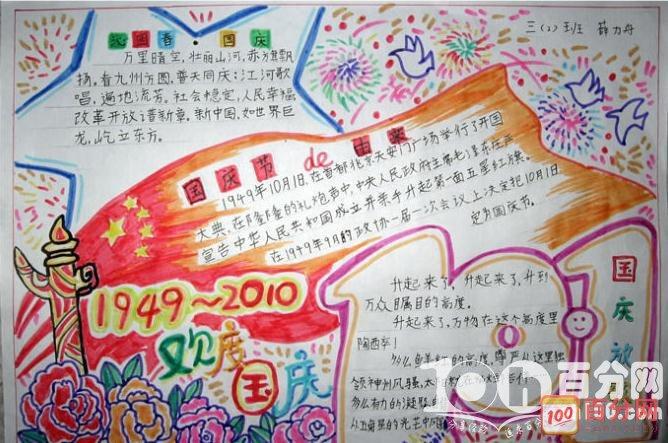 三(2)班 薛力舟
沁园春·国庆
万里晴空,壮丽山河,赤旗飘
扬,看九州方圆,普天同庆;江河歌
唱,遍地流芳。社会稳定,人民幸福
改革开放谱新章。新中国,如世界巨
龙,屹立东方。
国庆节de由来
1949年10月1日,在首都北京天安门广场举行了开国
大典,在隆隆的礼炮声中,中央人民政府主席毛泽东庄严
宣告中华人民共和国成立并亲手升起第一面五星红旗。
在1949年9月的政协一届一次会议上决定把10月1日
定为国庆节。
1949~2010
欢度国庆
国庆放
升起来了,升起来了,升到
万众瞩目的高度。
升起来了,万物在这个高度里
陶醉卒!
多么鲜红的高度,尊严从这里独
领神州风骚,太阳
多么有力的凝聚
从五角星的光芒中
百分网
100 百分网